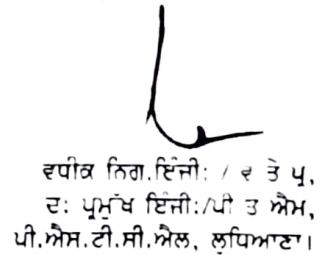 ਵਧੀਕ ਨਿਗ.ਇੰਜੀ: / ਵ ਤੇ ਪ੍ਰ,
ਦ: ਪ੍ਰਮੁੱਖ ਇੰਜੀ:/ਪੀ ਤ ਐਮ,
ਪੀ.ਐਸ.ਟੀ.ਸੀ.ਐਲ, ਲੁਧਿਆਣਾ।